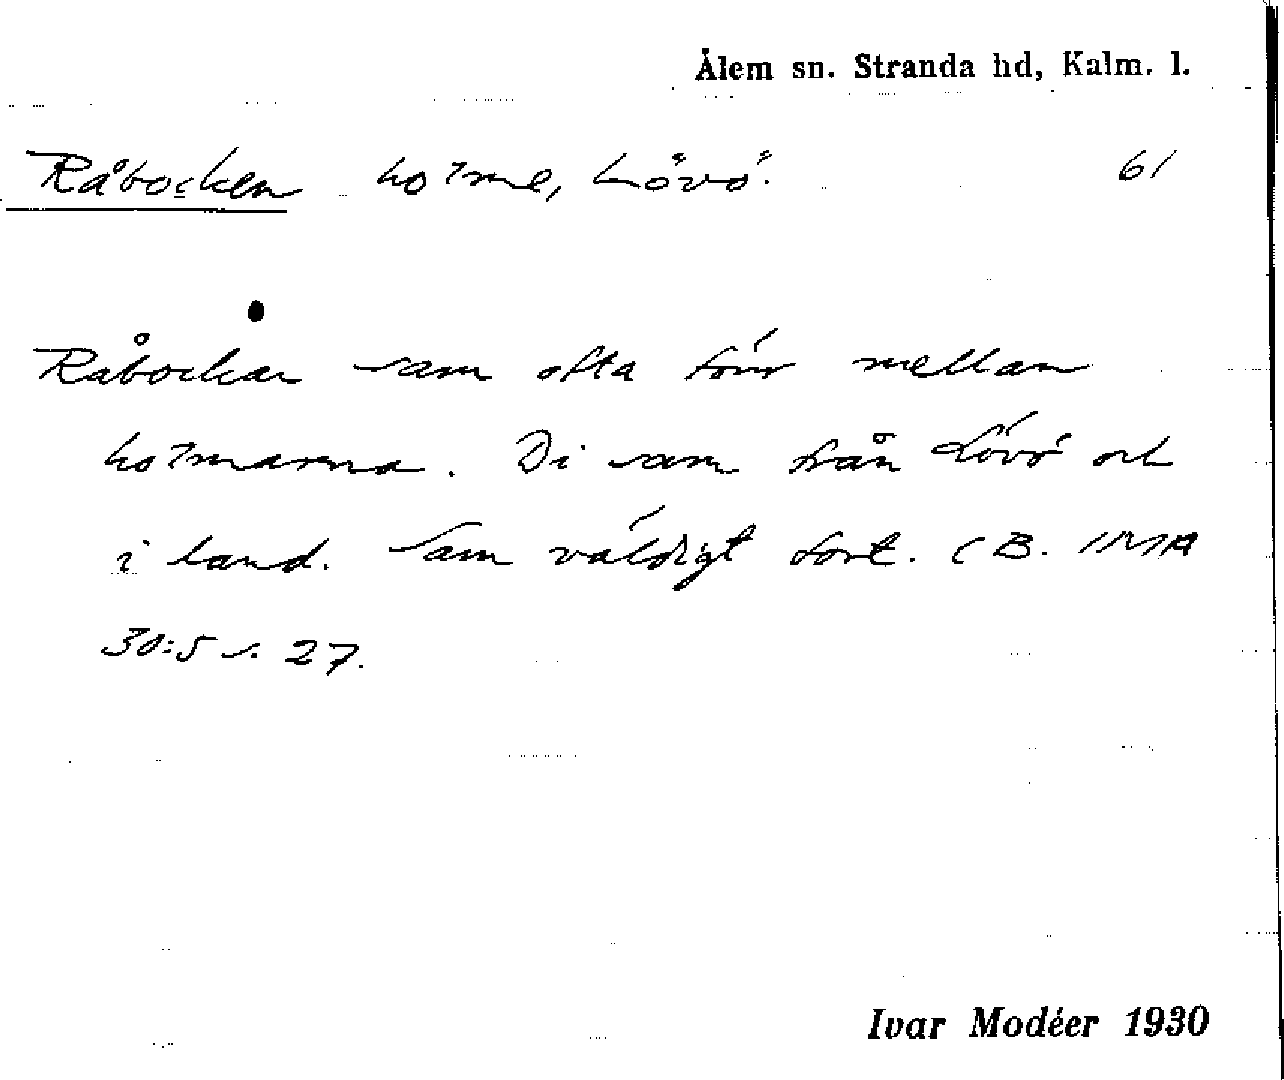 Ålem sn. Stranda hd, Kalm. l.
Råbocken holme, Lövö. 61
Råbockar sam ofta förr mellan
holmarna. Di sam från Lövö och
i land. Sam väldigt fort. (B. IMA
30:5 s. 27.
Ivar Modéer 1930